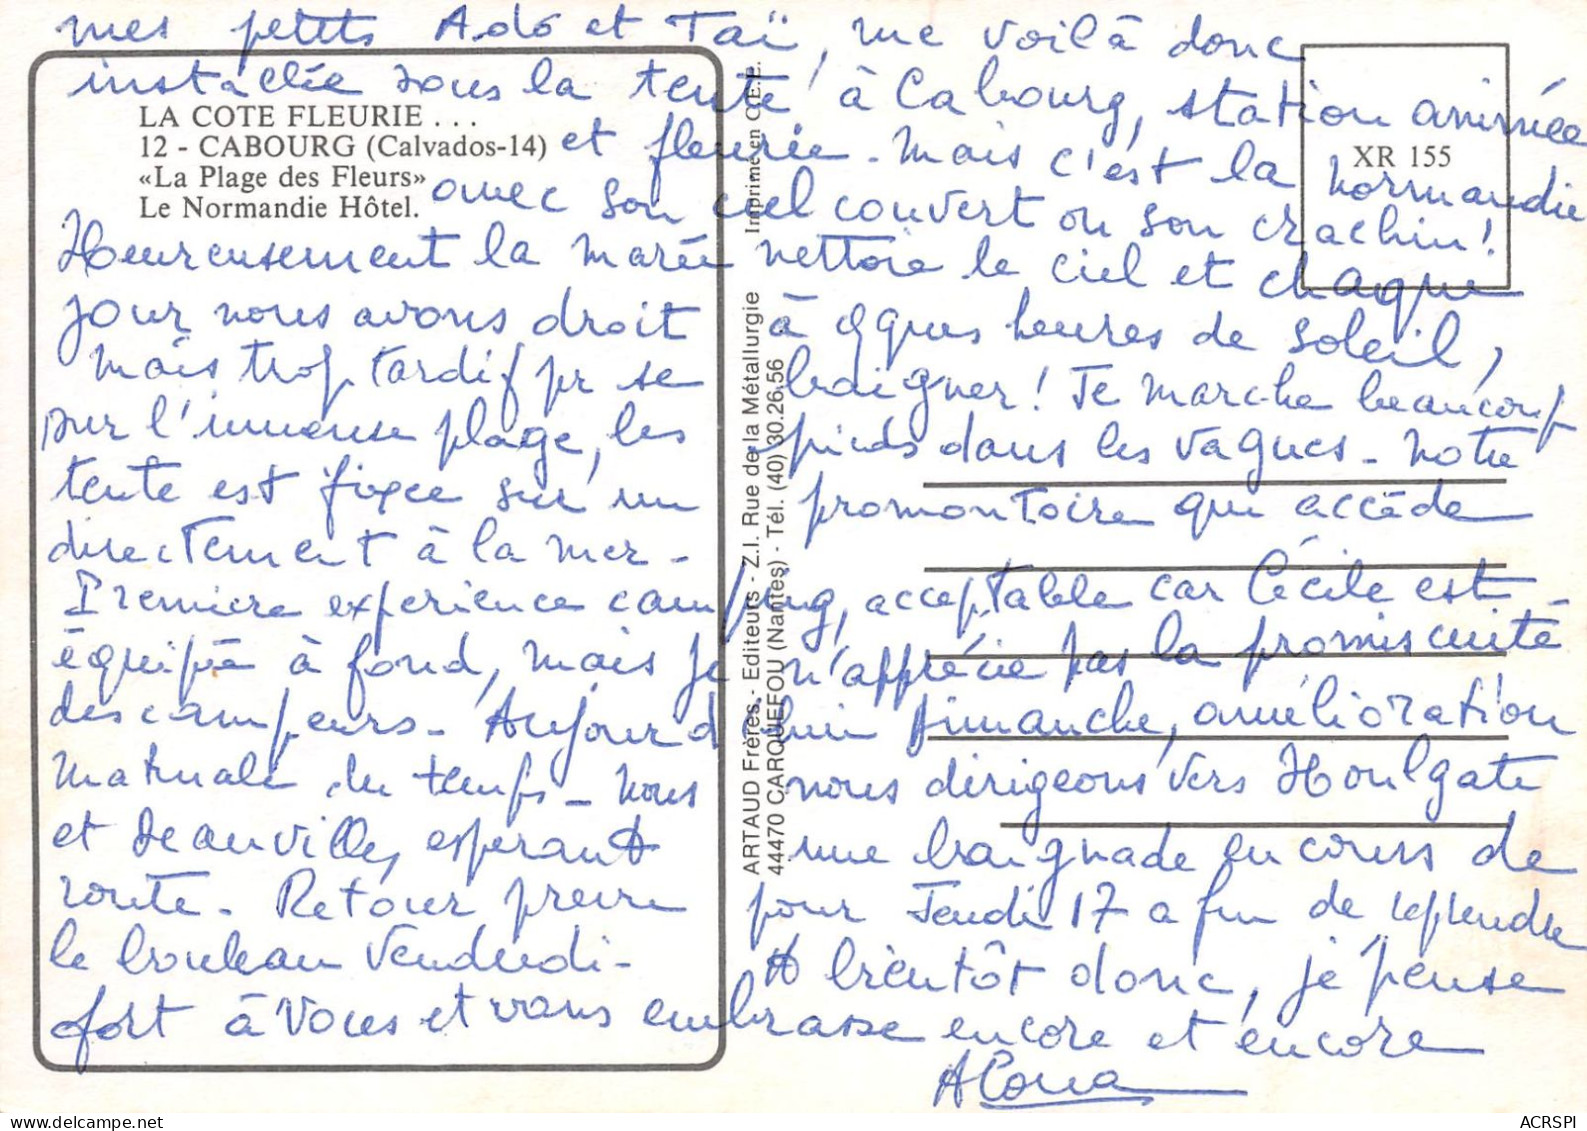 mes petits Ado et Taï, me voilà donc
installée sous la tente à Cabourg, station animée
LA COTE FLEURIE . . .
12 - CABOURG (Calvados-14)
«La Plage des Fleurs»
Le Normandie Hôtel.
XR 155
et fleurie. Mais c'est la Normandie
avec son ciel couvert ou son crachin!
Heureusement la marée nettoie le ciel et chaque
jour nous avons droit à qques heures de soleil,
mais trop tardif pr se baigner! Je marche beaucoup
sur l'immense plage, les pieds dans les vagues - Notre
tente est fixée sur un promontoire qui accède
directement à la mer -
Première expérience camping, acceptable car Cécile est
équipée à fond, mais je n'apprécie pas la promiscuité
des campeurs - Aujourd'hui Dimanche, amélioration
matinale du temps - Nous nous dirigeons vers Houlgate
et Deauville, espérant une baignade en cours de
route. Retour prévu pour Jeudi 17 afin de reprendre
le bouleau Vendredi -
A bientôt donc, je pense
fort à Vous et vous embrasse encore et encore
Imprimé en C.E.E.
ARTAUD Frères - Editeurs - Z.I. Rue de la Métallurgie
44470 CARQUEFOU (Nantes) - Tél. (40) 30.26.56
ACRSPI